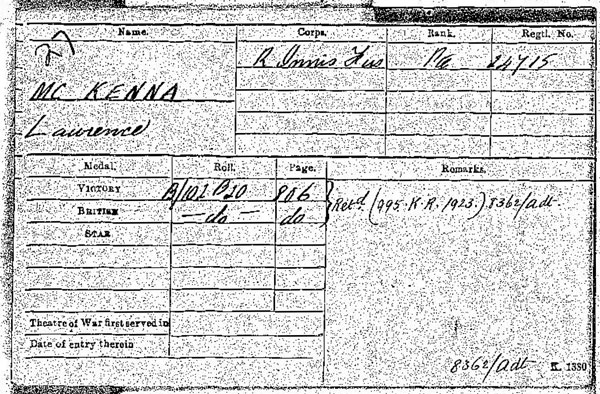 Name. Corps. Rank. Regtl. No.
R Innis Fus Pte 24715
MC KENNA
Lawrence
Medal. Roll. Page. Remarks.
VICTORY B/102 B20 806
BRITISH — do — do Retd. (995 K.R. 1923.) 8362/Adt
STAR
Theatre of War first served in
Date of entry therein
8362/Adt K. 1380